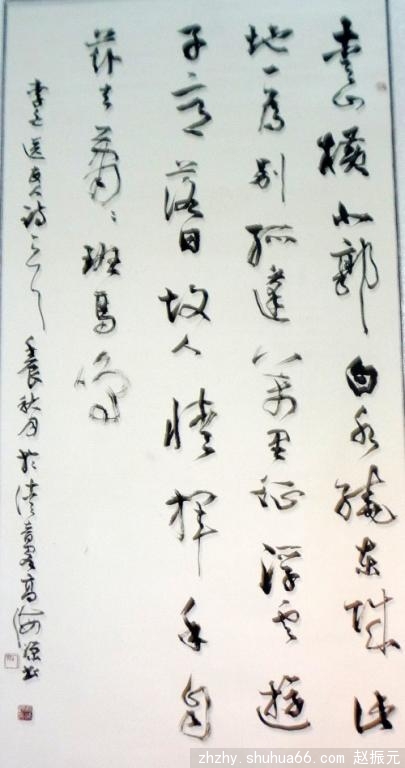 青山横北郭白水绕东城此
地一为别孤蓬万里征浮云游
子意落日故人情挥手自
兹去萧〻班马鸣
李白送友人诗一首 壬辰秋月於清 高海书
zhzhy.shuhua66.com 赵振元